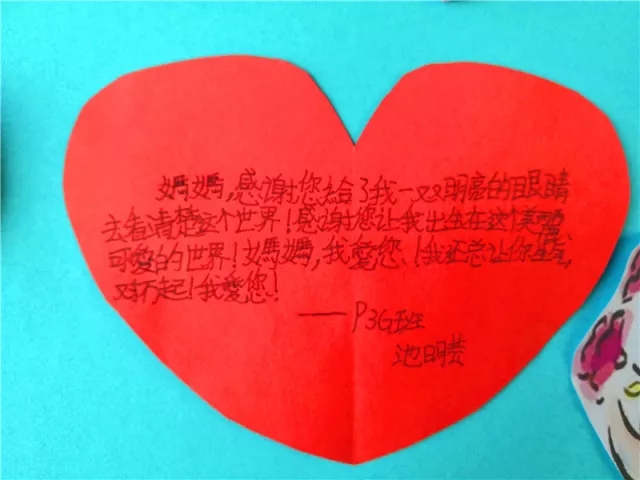 媽媽,感谢您給了我一双明亮的眼睛
去看清楚这个世界!感谢您让我出生在这个美麗、
可愛的的世界!媽媽,我愛您!我还总让你生气,
对不起!我愛您!
——P3G班
池明芸